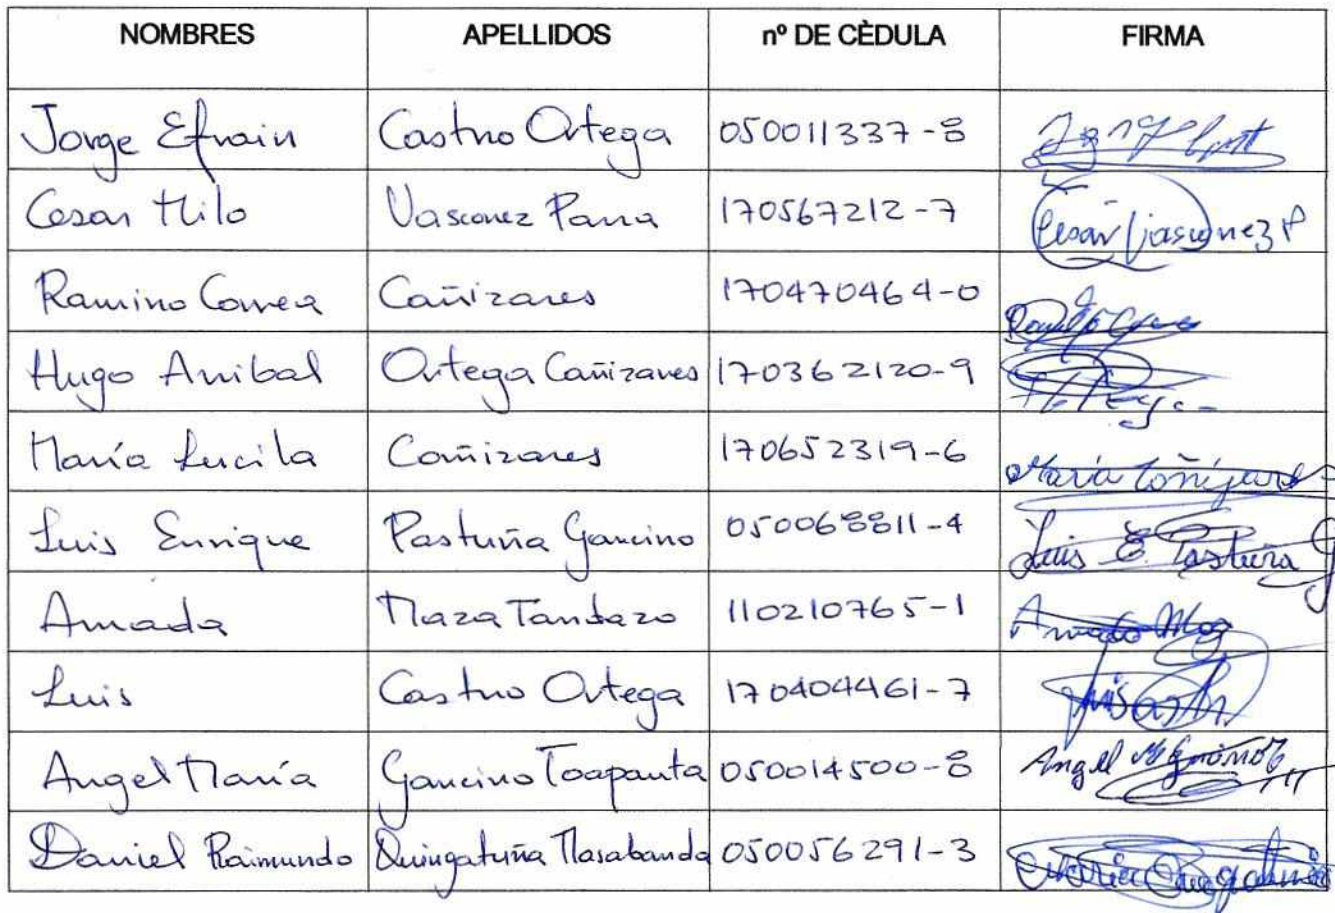 NOMBRES APELLIDOS nº DE CÈDULA FIRMA
Jorge Efrain Castro Ortega 050011337-8
Cesar Hilo Vasconez Parra 170567212-7 Cesar Vasconez P
Ramiro Correa Cañizares 170470464-0
Hugo Anibal Ortega Cañizares 170362120-9
María Lucila Cañizares 170652319-6 María Cañizares
Luis Enrique Pastuña Gancino 050068811-4 Luis E. Pastuña G
Amada Maza Tandazo 110210765-1
Luis Castro Ortega 170404461-7
Angel María Gancino Toapanta 050014500-8 Angel
Daniel Raimundo Quingatuña Masabanda 050056291-3